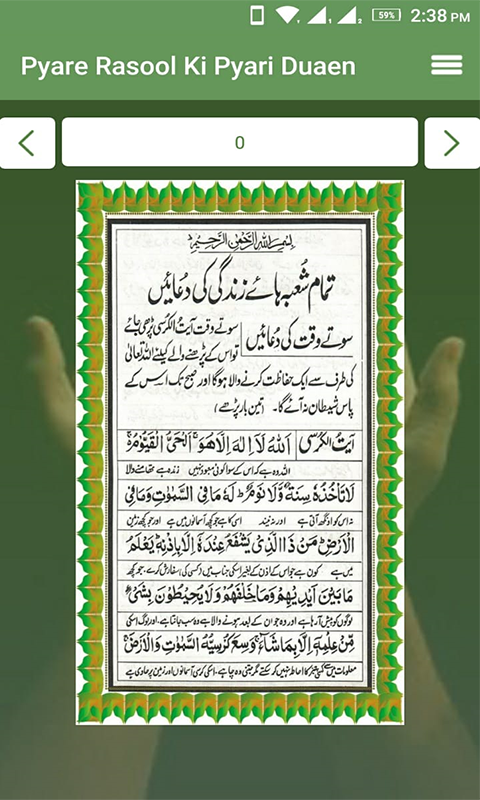 59%
2:38 PM
Pyare Rasool Ki Pyari Duaen
0
بسم اللہ الرحمن الرحیم
تمام شعبہ ہائے زندگی کی دُعائیں
سوتے وقت کی دُعائیں
سوتے وقت آیتُ الکرسی پڑھی جائے
تو اس کے پڑھنے والے کیلئے اللہ تعالیٰ
کی طرف سے ایک حفاظت کرنے والا ہوگا اور صبح تک اس کے
پاس شیطان نہ آئے گا۔ (تین بار پڑھے)
آیتُ الکرسی اَللّٰهُ لَآ اِلٰهَ اِلَّا هُوَ ۚ اَلْحَيُّ الْقَيُّوْمُ ۚ
اللہ وہ ہے کہ اس کے سوا کوئی معبود نہیں زندہ ہے تھامنے والا
لَا تَاْخُذُهٗ سِنَةٌ وَّلَا نَوْمٌ ؕ لَهٗ مَا فِي السَّمٰوٰتِ وَمَا فِي
نہ اس کو اونگھ آتی ہے اور نہ نیند اسی کا ہے جو کچھ آسمانوں میں ہے اور جو کچھ زمین
الْاَرْضِ ؕ مَنْ ذَا الَّذِيْ يَشْفَعُ عِنْدَهٗٓ اِلَّا بِاِذْنِهٖ ؕ يَعْلَمُ
میں ہے کون ہے جو اس کے اذن کے بغیر اسکی جناب میں کسی کی سفارش کرے۔ جو کچھ
مَا بَيْنَ اَيْدِيْهِمْ وَمَا خَلْفَهُمْ ۚ وَلَا يُحِيْطُوْنَ بِشَيْءٍ
لوگوں کو پیش آ رہا ہے اور وہ جو ان کے بعد ہونے والا ہے وہ سب جانتا ہے، اور لوگ اسکی
مِّنْ عِلْمِهٖٓ اِلَّا بِمَا شَآءَ ۚ وَسِعَ كُرْسِيُّهُ السَّمٰوٰتِ وَالْاَرْضَ ۚ
معلومات میں سے کسی چیز کا احاطہ نہیں کر سکتے مگر جتنی وہ چاہے، اسکی کرسی آسمانوں اور زمین پر حاوی ہے